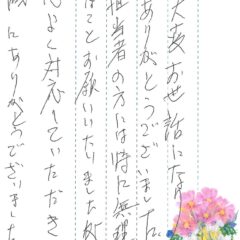 大変お世話になり
ありがとうございました。
担当者の方には時に無理
なことお願いいたしました処
よく対応していただき
誠にありがとうございました